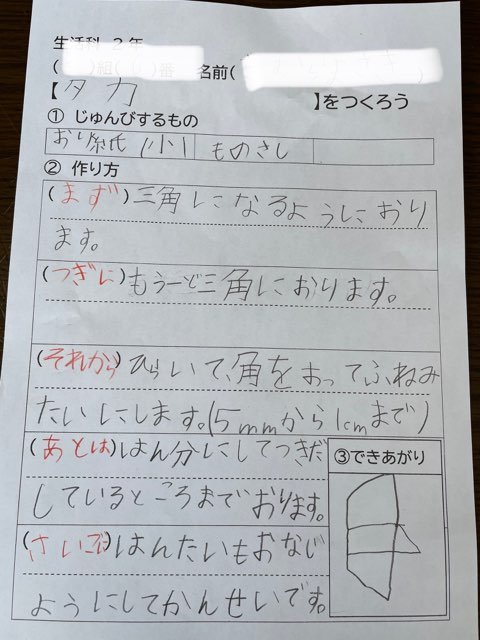 生活科 2年
( )組( )番 名前( )
【タカ 】をつくろう
① じゅんびするもの
おり紙(小) ものさし
② 作り方
(まず)三角になるようにおり
ます。
(つぎに)もう一ど三角におります。
(それから)ひらいて、角をおってふねみ
たいにします。(5mmから1cmまで)
(あとは)はん分にしてつきだ
しているところまでおります。
③できあがり
(さいごに)はんたいもおなじ
ようにしてかんせいです。